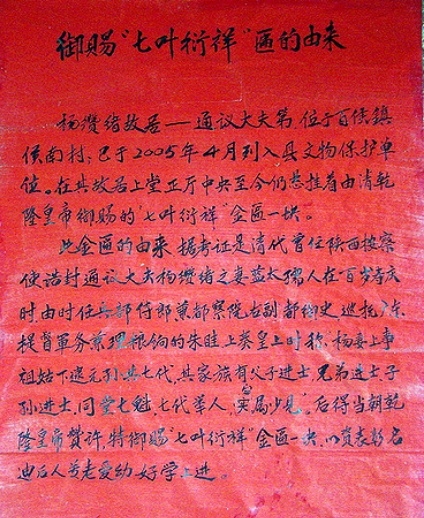 御赐“七叶衍祥”匾的由来
杨缵绪故居——通议大夫第,位于百侯镇
侯南村;已于2005年4月列入县文物保护单
位。在其故居上堂正厅中央至今仍悬挂着由清乾
隆皇帝御赐的“七叶衍祥”金匾一块。
此金匾的由来,据考证是清代曾任陕西按察
使诰封通议大夫杨缵绪之妻蓝太孺人在百岁寿庆
时,由时任兵部侍郎兼都察院右副都御史巡抚广东
提督军务兼理粮饷的朱 上奏皇上时称:杨妻上事
祖姑下逮元孙共七代,其家族有父子进士,兄弟进士,子
孙进士,同堂七魁,七代举人,实属少见。后得当朝乾
隆皇帝赞许,特御赐“七叶衍祥”金匾一块,以资表彰名
迪后人尊老爱幼、好学上进。